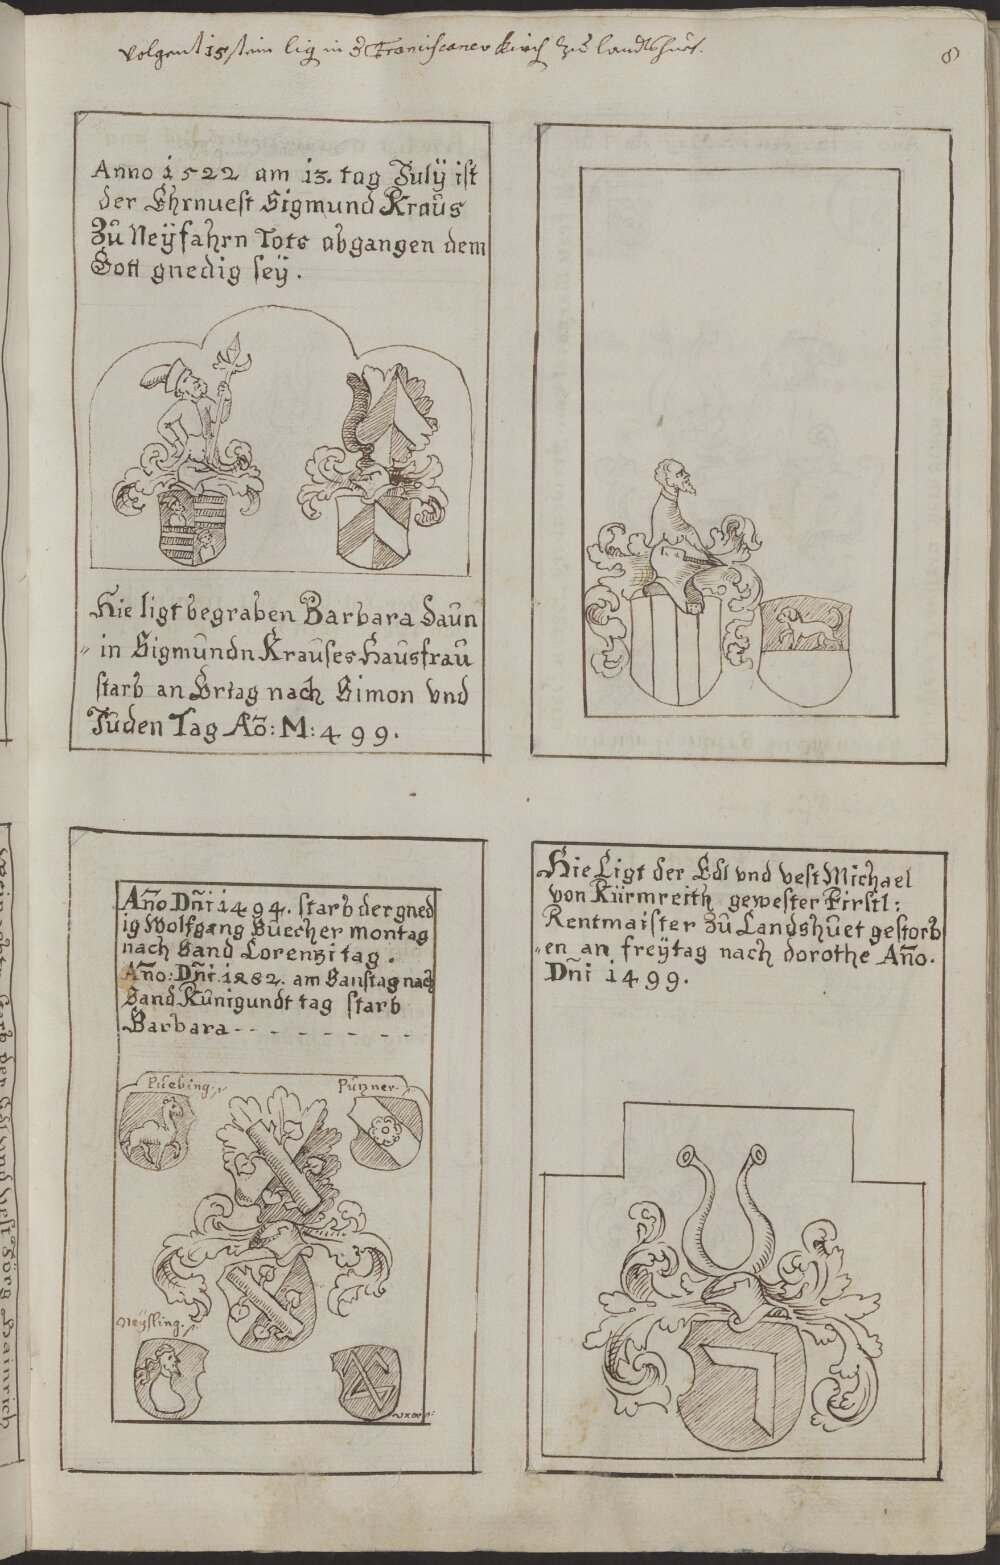 Volgent 15 stein lig in d Franciscaner Kirch zu landtshuet.
8
Anno 1522 am 13. tag Julÿ ist
der Ehrnuest Sigmund Kraus
Zu Neÿfahrn Tots abgangen dem
Gott gnedig seÿ.
Hie ligt begraben Barbara daun
„ in Sigmundn Krauses Hausfrau
starb an Ertag nach Simon vnd
Juden Tag Ao: M: 499.
Año Dñi 1494. starb der gned
ig Wolfgang Buecher montag
nach Sand Lorenzi tag.
Año: Dñi. 1282. am Sanstag nach
Sand Kunigundt tag starb
Barbara - - - - - - - -
Puebing.
Puzner.
Neÿsling.
uxor
Hie Ligt der Edl vnd vest Michael
von Kürmreith gewester Firstl:
Rentmaister Zu Landshuet gestorb
„en an freÿtag nach dorothe Año.
Dñi 1499.